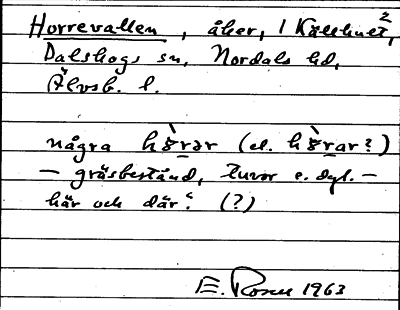 Horrevallen, åker, 1 Källhult²,
Dalskogs sn, Nordals hd,
Älvsb. l.
några hɤ̀rər (el. hɤ̀rar?)
— gräsbestånd, tuvor e. dyl. —
här och där". (?)
E. Rosell 1963